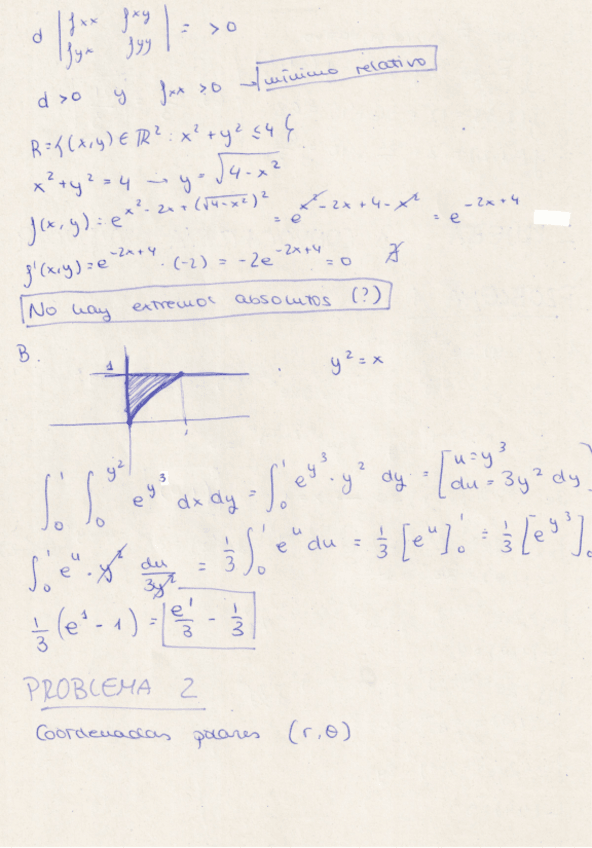 d | fxx fxy | = > 0
| fyx fyy |
d > 0 y fxx > 0 → mínimo relativo
R = {(x,y) ∈ ℝ² : x² + y² ≤ 4}
x² + y² = 4 → y = √(4 - x²)
f(x,y) = e^(x² - 2x + (√(4-x²))²) = e^(x² - 2x + 4 - x²) = e^(-2x+4)
f'(x,y) = e^(-2x+4) · (-2) = -2e^(-2x+4) = 0 ∄
No hay extremos absolutos (?)
B. y² = x
1
1
∫₀¹ ∫₀^(y²) e^(y³) dx dy = ∫₀¹ e^(y³) · y² dy = [u = y³
du = 3y² dy]
∫₀¹ e^u · y² du/3y² = 1/3 ∫₀¹ e^u du = 1/3 [e^u]₀¹ = 1/3 [e^(y³)]₀
1/3 (e¹ - 1) = e¹/3 - 1/3
PROBLEMA 2
Coordenadas polares (r, θ)